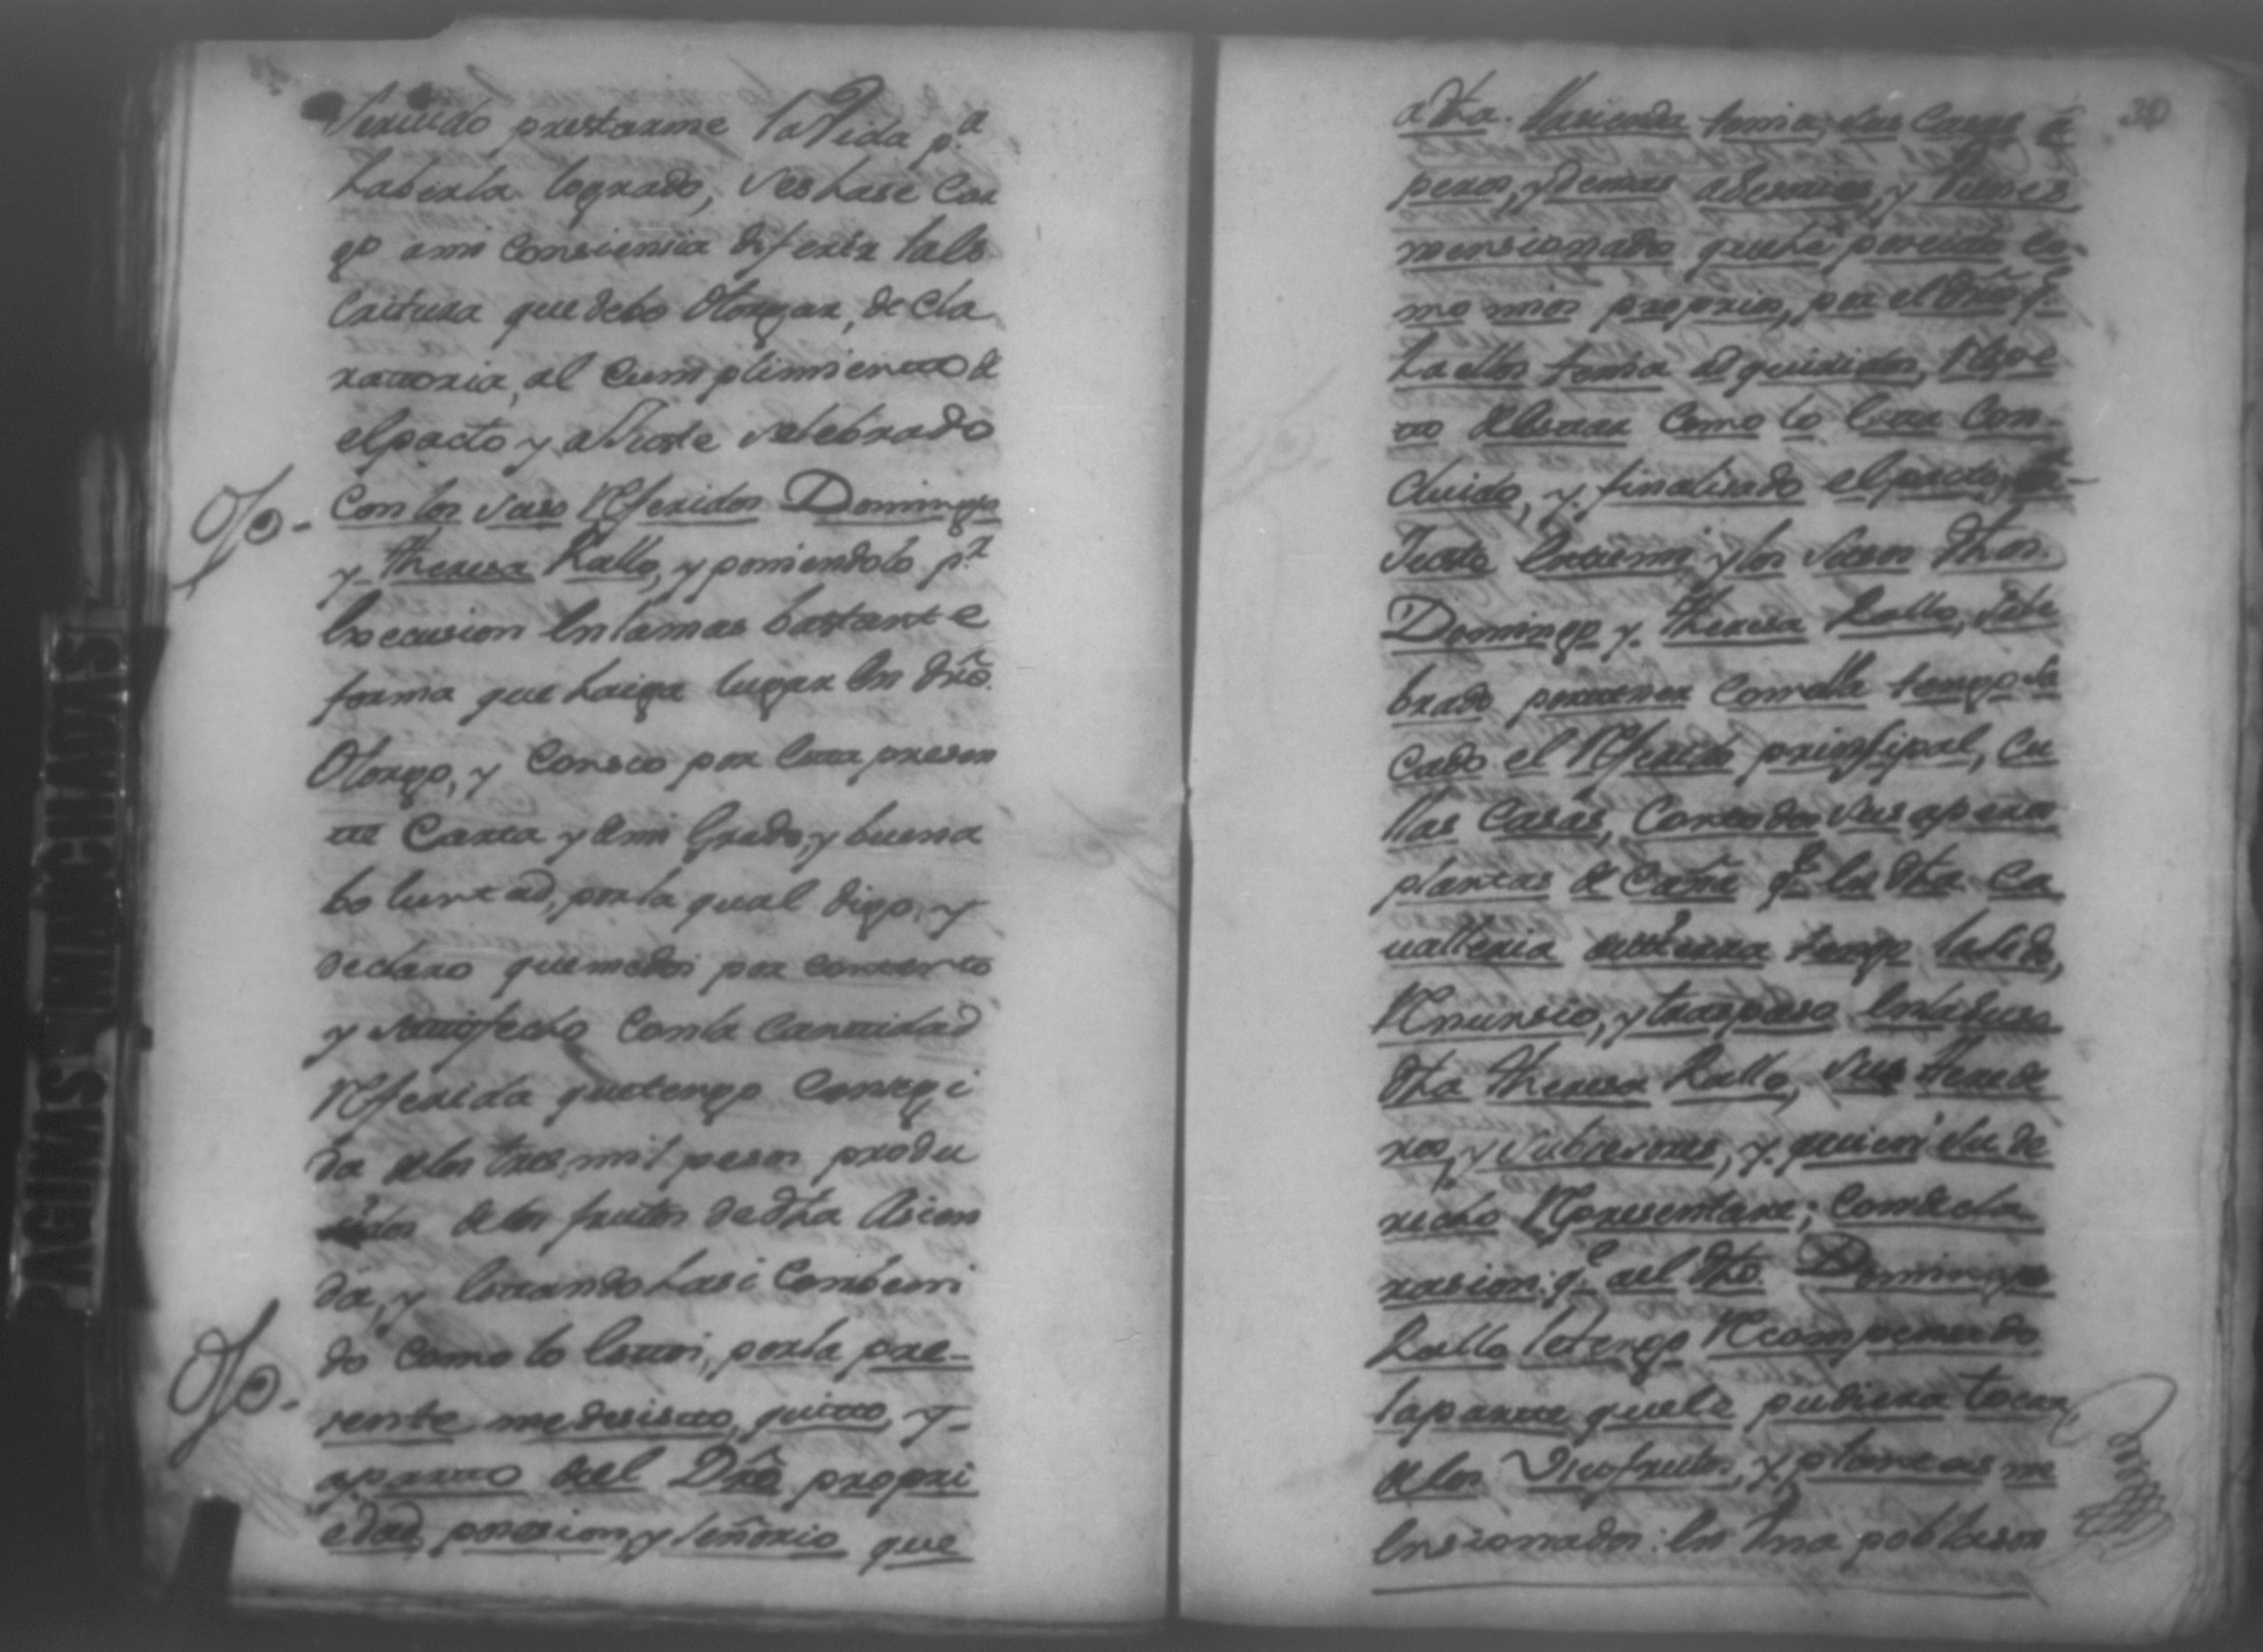 Servido prestarme la Vida p.ª
haberla logrado, ses hase Car
go ami Consiensia diferir la es
Critura que debo Otorgar, de cla
rattoria, al Cumplimientto de
el pacto y a Juste selebrado
Ojo. Con los suso Rferidos Domingo
y Theresa Rallo, y poniendolo p.ª
Excecusion En la mas bastante
forma que haiga lugar En drõ.
Otorgo, y Conosco por Esta presen
tte Carta y de mi Grado, y buena
boluntad, por la qual digo, y
declaro que me doi por contento
y sattisfecho Con la Canttidad
Rferida que tengo Consegi
da de los tres mil pesos produ
sidos de los frutos de dha Asien
da, y Esttando hasi Combeni
do Como lo Esttoi, por la pre-
Ojo. sente me desistto, quitto, y-
apartto de el Drõ propri
edad, posesion, y señorio que
30
a dha. Hasienda tenia, sus Casas a
peros, y demas aderesos, y vienes
mensionado que hè poseido co-
mo mios proprios, por el drõ q.e
ha ellos tenia adquiridos, Rspe
tto de Esttar Como lo Esttá Con-
cluido, y finalisado el pacto, y a
Juste Entre mi y los suson dhos.
Domingo y Theresa Rallo, sele
brado por tener Como lla tengo sa
cado el Rferido prinsipal, Cu
llas Casas, Con todos sus aperos
plantas de Caña q.e En dha Ca
valleria de tierra tengo ha sedo,
Rnunsio, y traspaso En la suso
dha Theresa Rallo, sus Herede
ros, y subsesores, y quien su de
recho Rpresentare; Con decla
rasion q.e a el dho. Domingo
Rallo le tengo Recompensado
la partte que le pudiera tocar,
de los Vsufrutos, y plantas m
Ensionados: En Una poblason
PAGINAS MANCHADAS